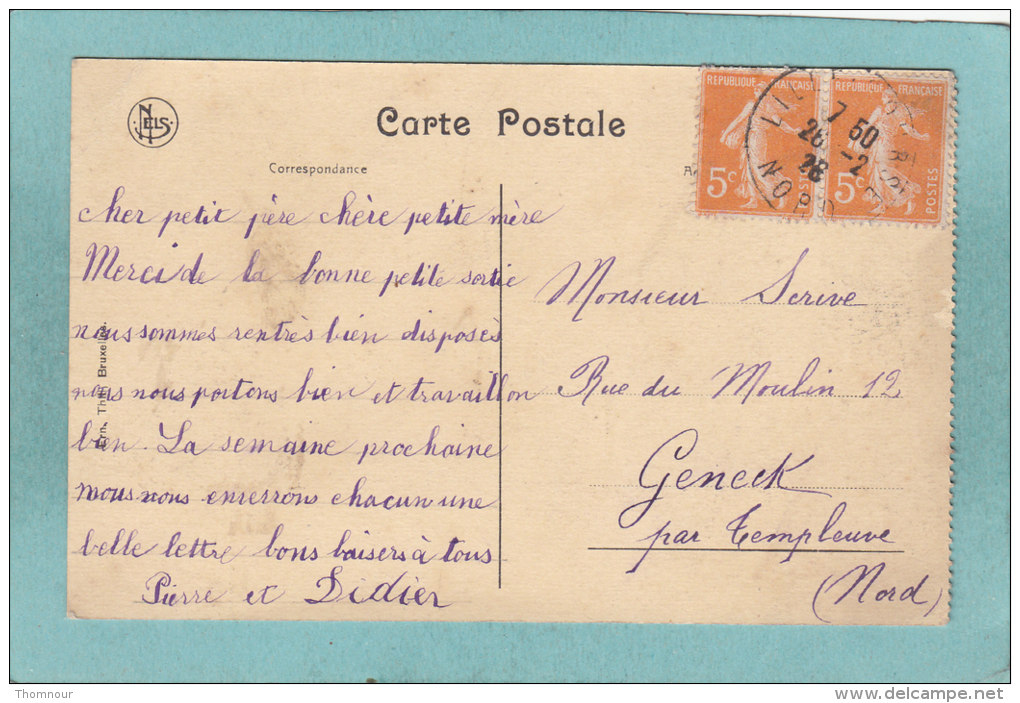 NELS
Carte Postale
Correspondance
REPUBLIQUE FRANÇAISE
5c
POSTES
REPUBLIQUE FRANÇAISE
5c
POSTES
7 50
26 -2
NORD
cher petit père chère petite mère
Merci de la bonne petite sortie
nous sommes rentrés bien disposés
nous nous portons bien et travaillon
bien. La semaine prochaine
nous nous enverrons chacun une
belle lettre bons baisers à tous
Pierre et Didier
Ern. Thill Bruxelles.
Monsieur Scrive
Rue du Moulin 12
Geneck
par Templeuve
(Nord)
Thomnour
http://www.delcampe.net